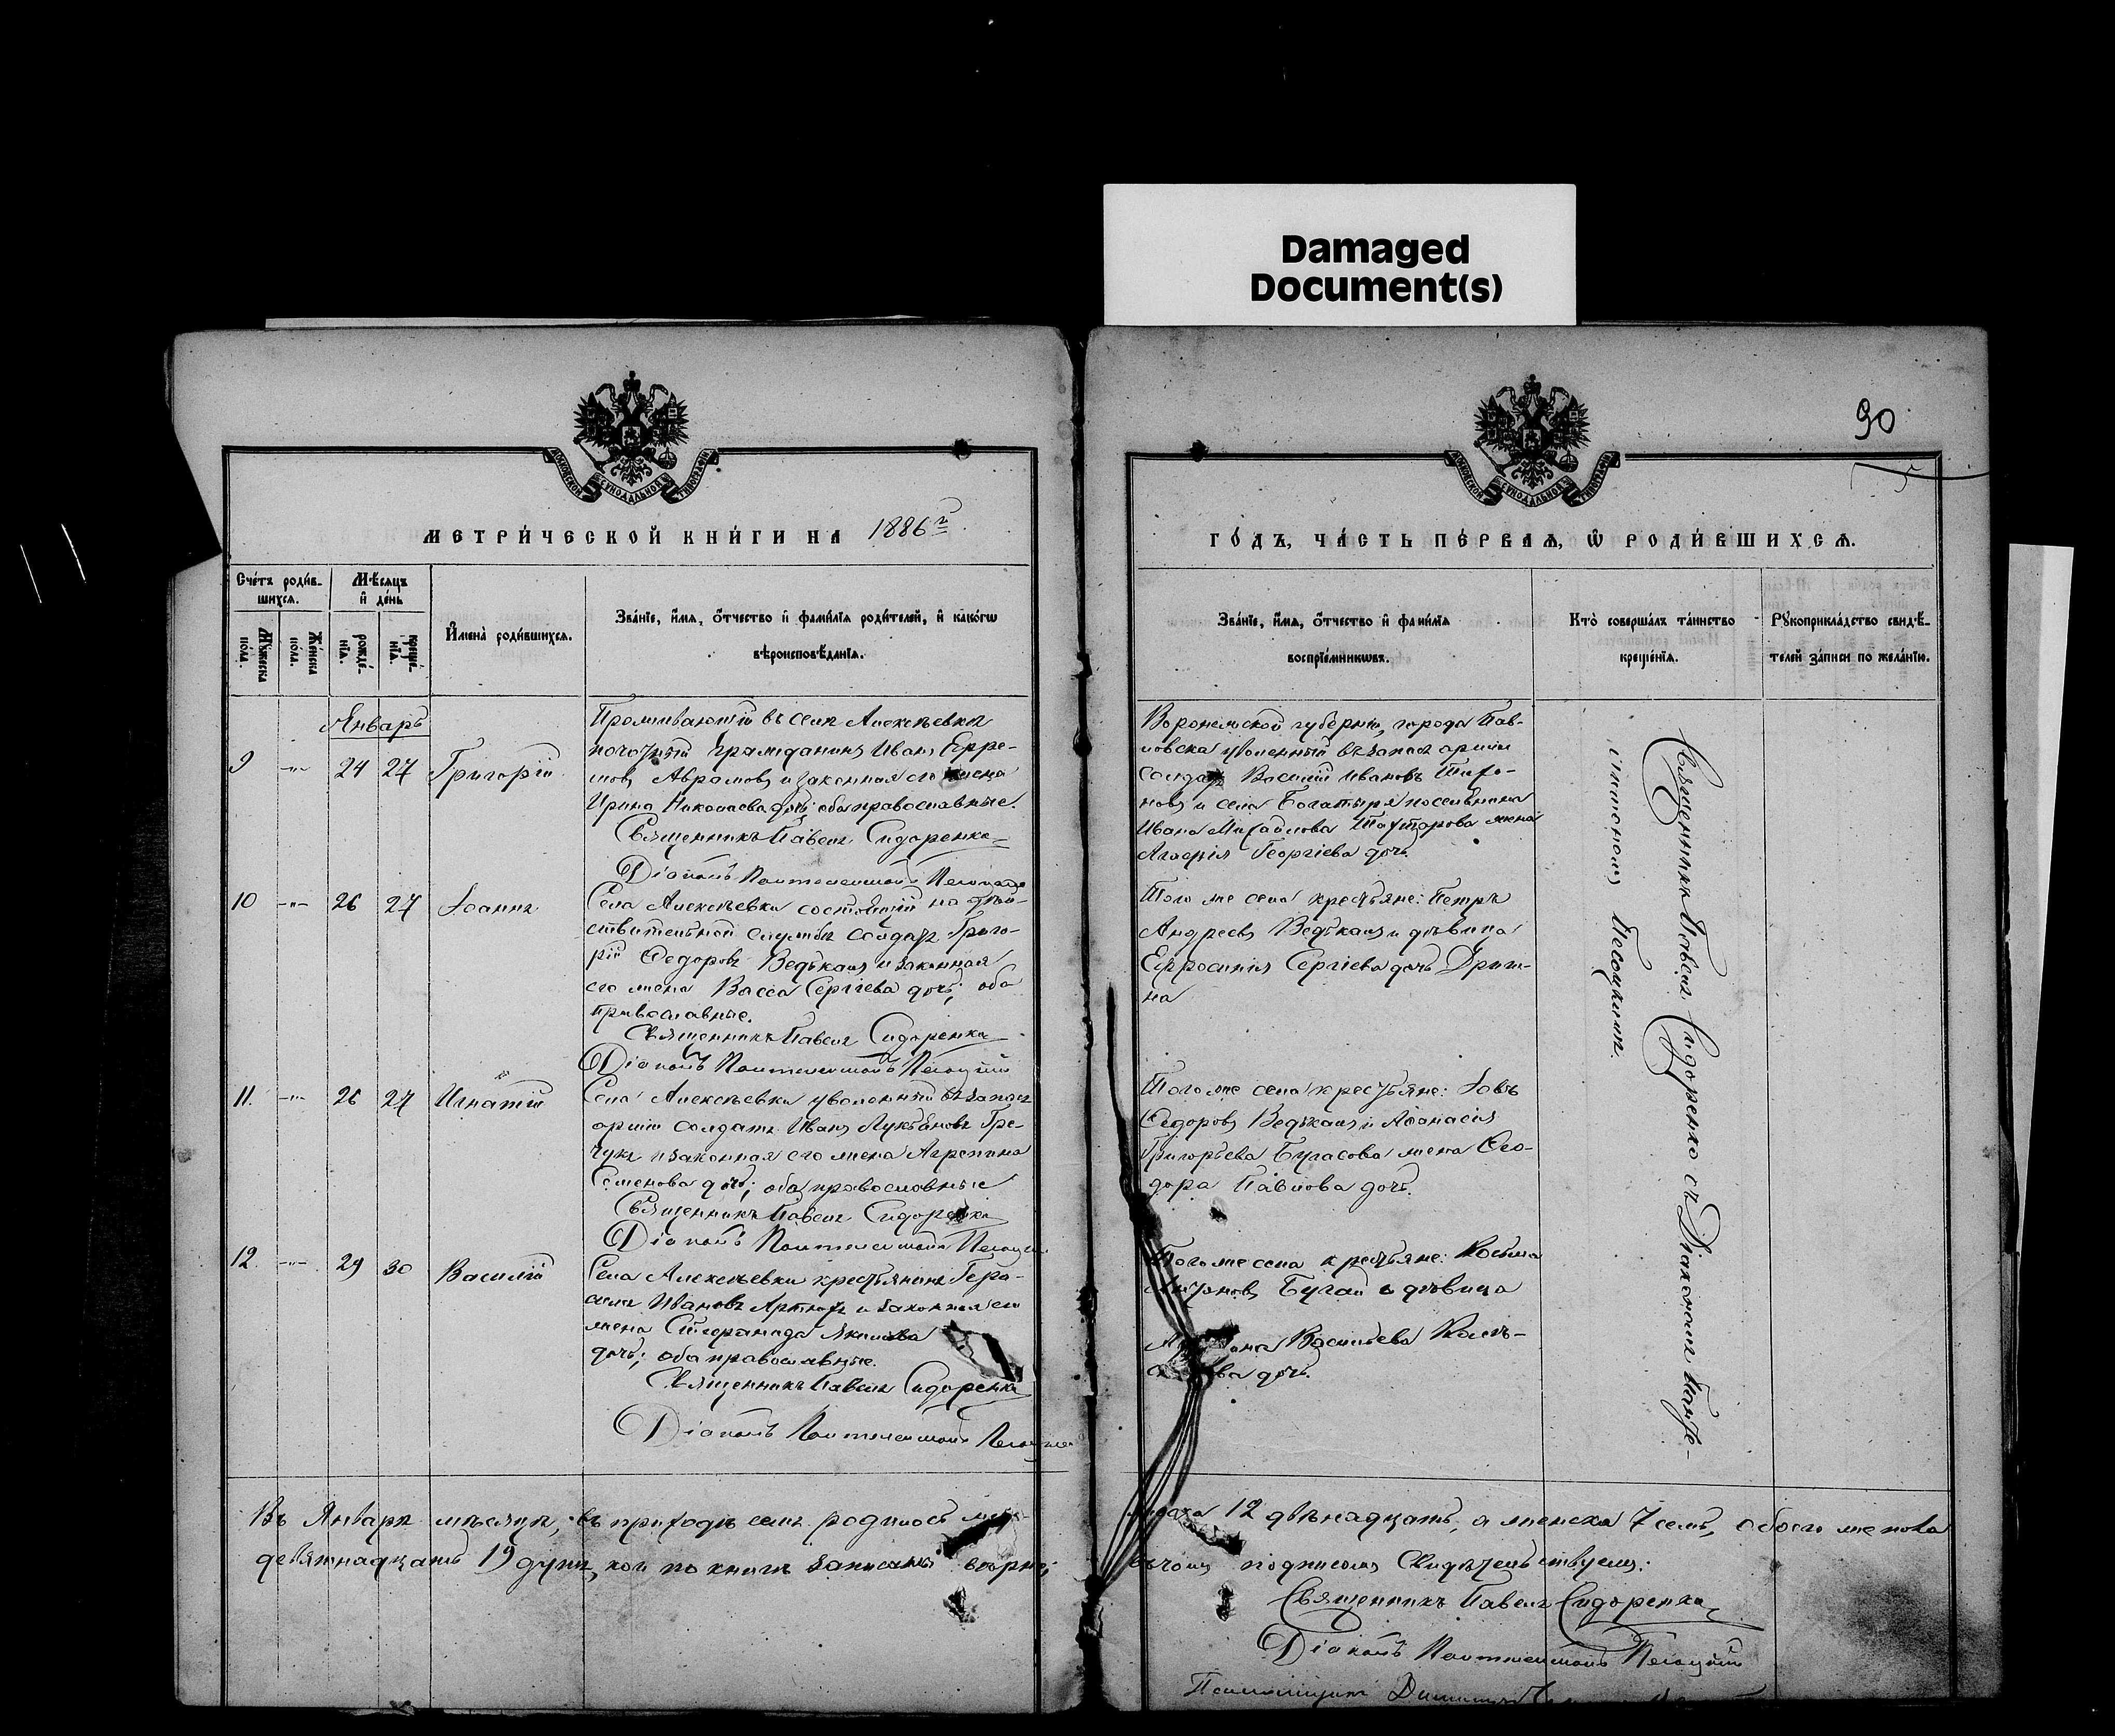 Damaged
Document(s)
90
МОСКОВСКОЙ СѴНОДАЛЬНОЙ ТИПОГРАФІИ
МОСКОВСКОЙ СѴНОДАЛЬНОЙ ТИПОГРАФІИ
МЕТРИ́ЧЕСКОЙ КНИ́ГИ НА 1886 г
ГО́ДЪ, ЧА́СТЬ ПЕ́РВАѦ, Ѡ РОДИ́ВШИХСѦ.
Сче́тъ роди́в-
шихсѧ.
Мꙋ́жеска пола.
Же́нска по́ла.
Мѣ́сѧцъ
и де́нь
рожде́-
нїѧ.
креще́-
нїѧ.
И҆мена̀ роди́вшихсѧ.
Зва́нїе, и҆́мѧ, ѻ҆́тчество и҆ фами́лїѧ роди́телей, и҆ како́гѡ
вѣроисповѣ́данїѧ.
Зва́нїе, и҆́мѧ, ѻ҆́тчество и҆ фами́лїѧ
воспрїе́мникѡвъ.
Кто̀ соверша́лъ та́инство
креще́нїѧ.
Рꙋкоприкла́дство свидѣ́-
телей за́писи по жела́нїю.
Январь
9 -"- 24 27 Григорій
Проживающій въ селѣ Алексѣевкѣ
почетный гражданинъ Иванъ Ефре-
мовъ Аврамовъ и законная его жена
Ирина Николаева дочь; оба православные.
Священникъ Павелъ Сидоренко
Діаконъ Пантелеимонъ Песоцкій
Воронежской губерніи, города Пав-
ловска уволенный въ запасъ арміи
солдатъ Василій Ивановъ Тихо-
новъ и села Богатыря поселянина
Ивана Михайлова Таутарова жена
Агафія Георгіева дочь.
10 -"- 26 27 Іоаннъ
Села Алексѣевки состоящій на дѣй-
ствительной службѣ солдатъ Григо-
рій Федоровъ Ведькалъ и законная
его жена Васса Сергіева дочь; оба
православные.
Священникъ Павелъ Сидоренко
Діаконъ Пантелеимонъ Песоцкій
Того же села крестьяне: Петръ
Андреевъ Ведькалъ и дѣвица
Евфросинія Сергіева дочь
11. -"- 26 27 Игнатій
Села Алексѣевки уволенный въ запасъ
арміи солдатъ Иванъ Лукьяновъ Гре-
чукъ и законная его жена Агрепина
Семенова дочь; оба православные
Священникъ Павелъ Сидоренко
Діаконъ Пантелеимонъ Песоцкій
Того же села крестьяне: Іовъ
Федоровъ Ведькалъ и Аѳанасія
Григорьева Бугасова жена Ѳео-
дора Павлова дочь.
12. -"- 29 30 Василій
Села Алексѣевки крестьянинъ Гера-
симъ Ивановъ Артюхъ и законная его
жена Стефанида Якимова
дочь; оба православные.
Священникъ Павелъ Сидоренко
Діаконъ Пантелеимонъ Песоцкій
Того же села крестьяне: Косьма
Бугай и дѣвица
Васильева
дочь.
Священникъ Павелъ Сидоренко съ Діакономъ Панте-
леимономъ Песоцкимъ.
Въ Январѣ мѣсяцѣ, въ приходѣ семъ родилось муж-
девятнадцать 19 душъ, кои по книгѣ записаны вѣрно;
12 двѣнадцать, а женска 7 семь, обоего же пола
въ чемъ подписомъ свидѣтельствуемъ:
Священникъ Павелъ Сидоренко
Діаконъ Пантелеимонъ Песоцкій